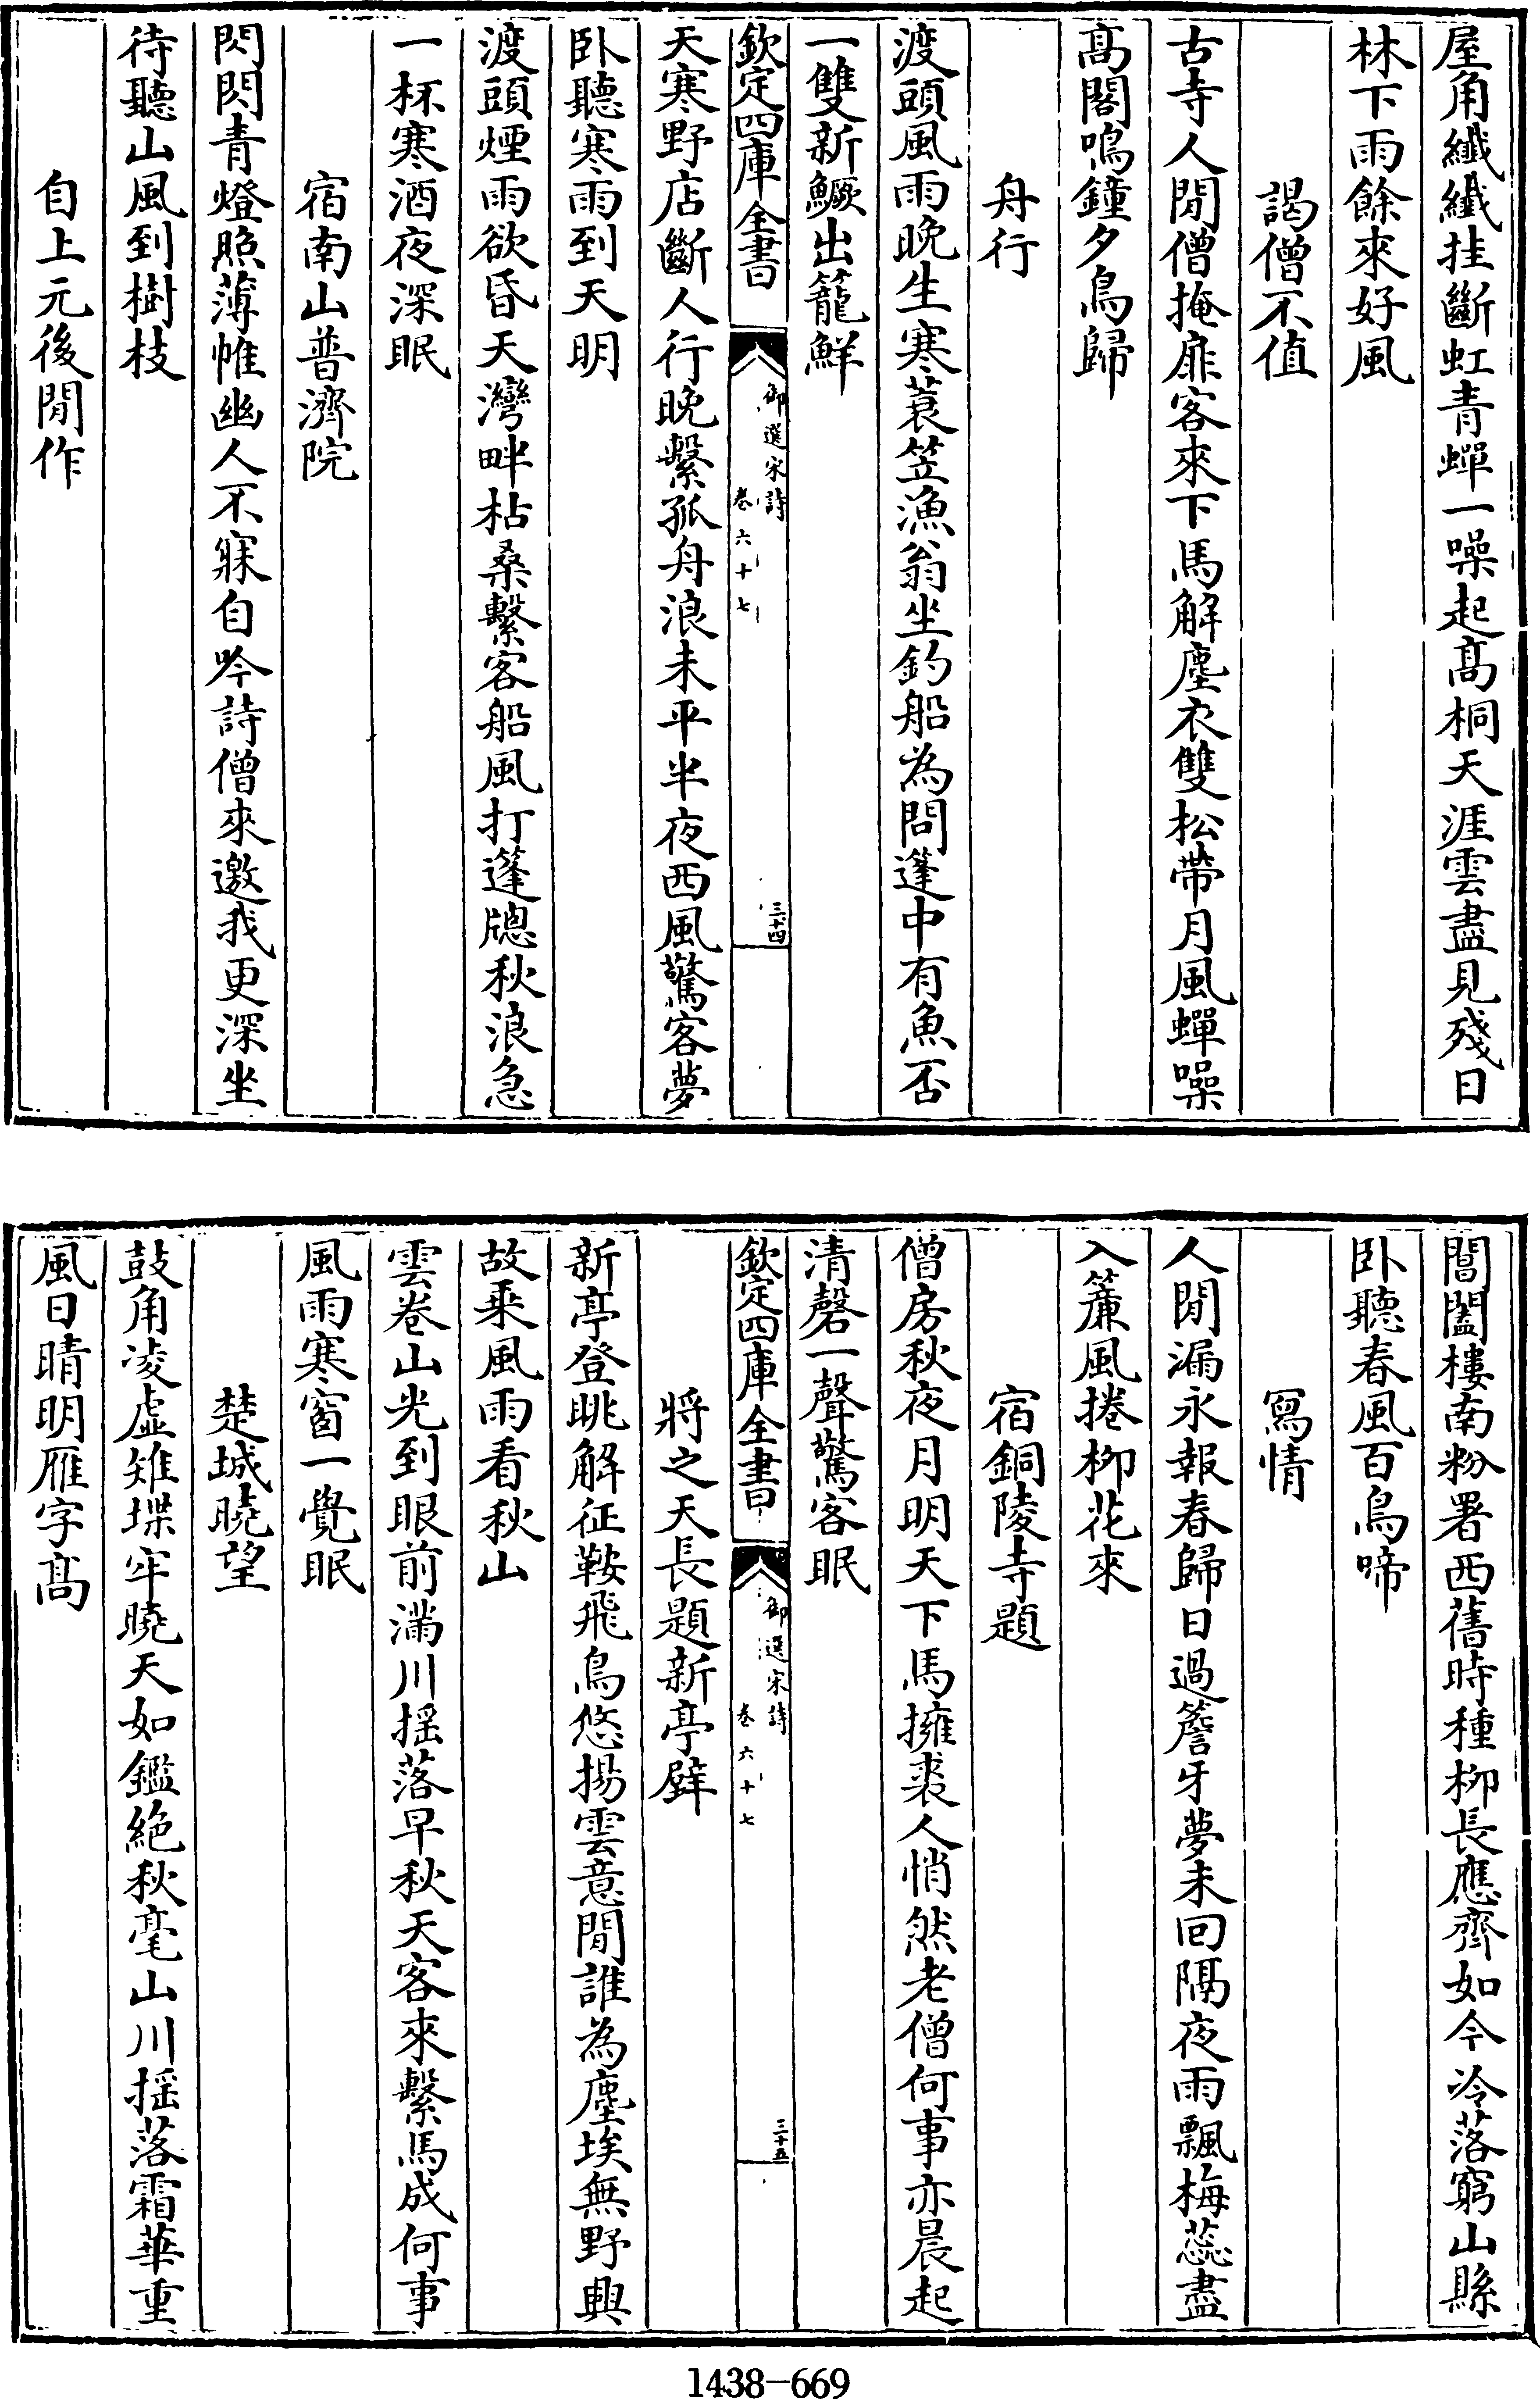 屋角纖纖挂斷虹青蟬一噪起髙桐天涯雲盡見殘日
林下雨餘來好風
謁僧不值
古寺人閒僧掩扉客來下馬解塵衣雙松帶月風蟬噪
髙閣鳴鐘夕鳥歸
舟行
渡頭風雨晚生寒蓑笠漁翁坐釣船為問篷中有魚否
一雙新鱖出籠鮮
欽定四庫全書
御選宋詩
卷六十七
三十四
天寒野店斷人行晚繫孤舟浪未平半夜西風驚客夢
卧聽寒雨到天明
渡頭煙雨欲昏天灣畔枯桑繫客船風打篷牕秋浪急
一杯寒酒夜深眠
宿南山普濟院
閃閃青燈照薄帷幽人不寐自吟詩僧來邀我更深坐
待聽山風到樹枝
自上元後閒作
閶闔樓南粉署西舊時種柳長應齊如今冷落窮山縣
卧聽春風百鳥啼
寫情
人閒漏永報春歸日過簷牙夢未回隔夜雨飄梅蕊盡
入簾風捲柳花來
宿銅陵寺題
僧房秋夜月明天下馬擁裘人悄然老僧何事亦晨起
清磬一聲驚客眠
欽定四庫全書
御選宋詩
卷六十七
三十五
將之天長題新亭壁
新亭登眺解征鞍飛鳥悠揚雲意閒誰為塵埃無野興
故乘風雨看秋山
雲卷山光到眼前滿川揺落早秋天客來繫馬成何事
風雨寒窗一覺眠
楚城曉望
鼓角凌虛雉堞牢曉天如鑑絶秋毫山川揺落霜華重
風日晴明雁字髙
1438-669